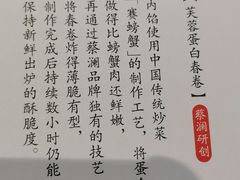 芙蓉蛋白春卷】
蔡澜研创
内馅使用中国传统炒菜
「赛螃蟹」的制作工艺，将蛋
做得比螃蟹肉还鲜嫩，
再通过蔡澜品牌独有的技艺
将春卷炸得薄脆有型，
制作完成后持续数小时仍能
保持新鲜出炉的酥脆度。